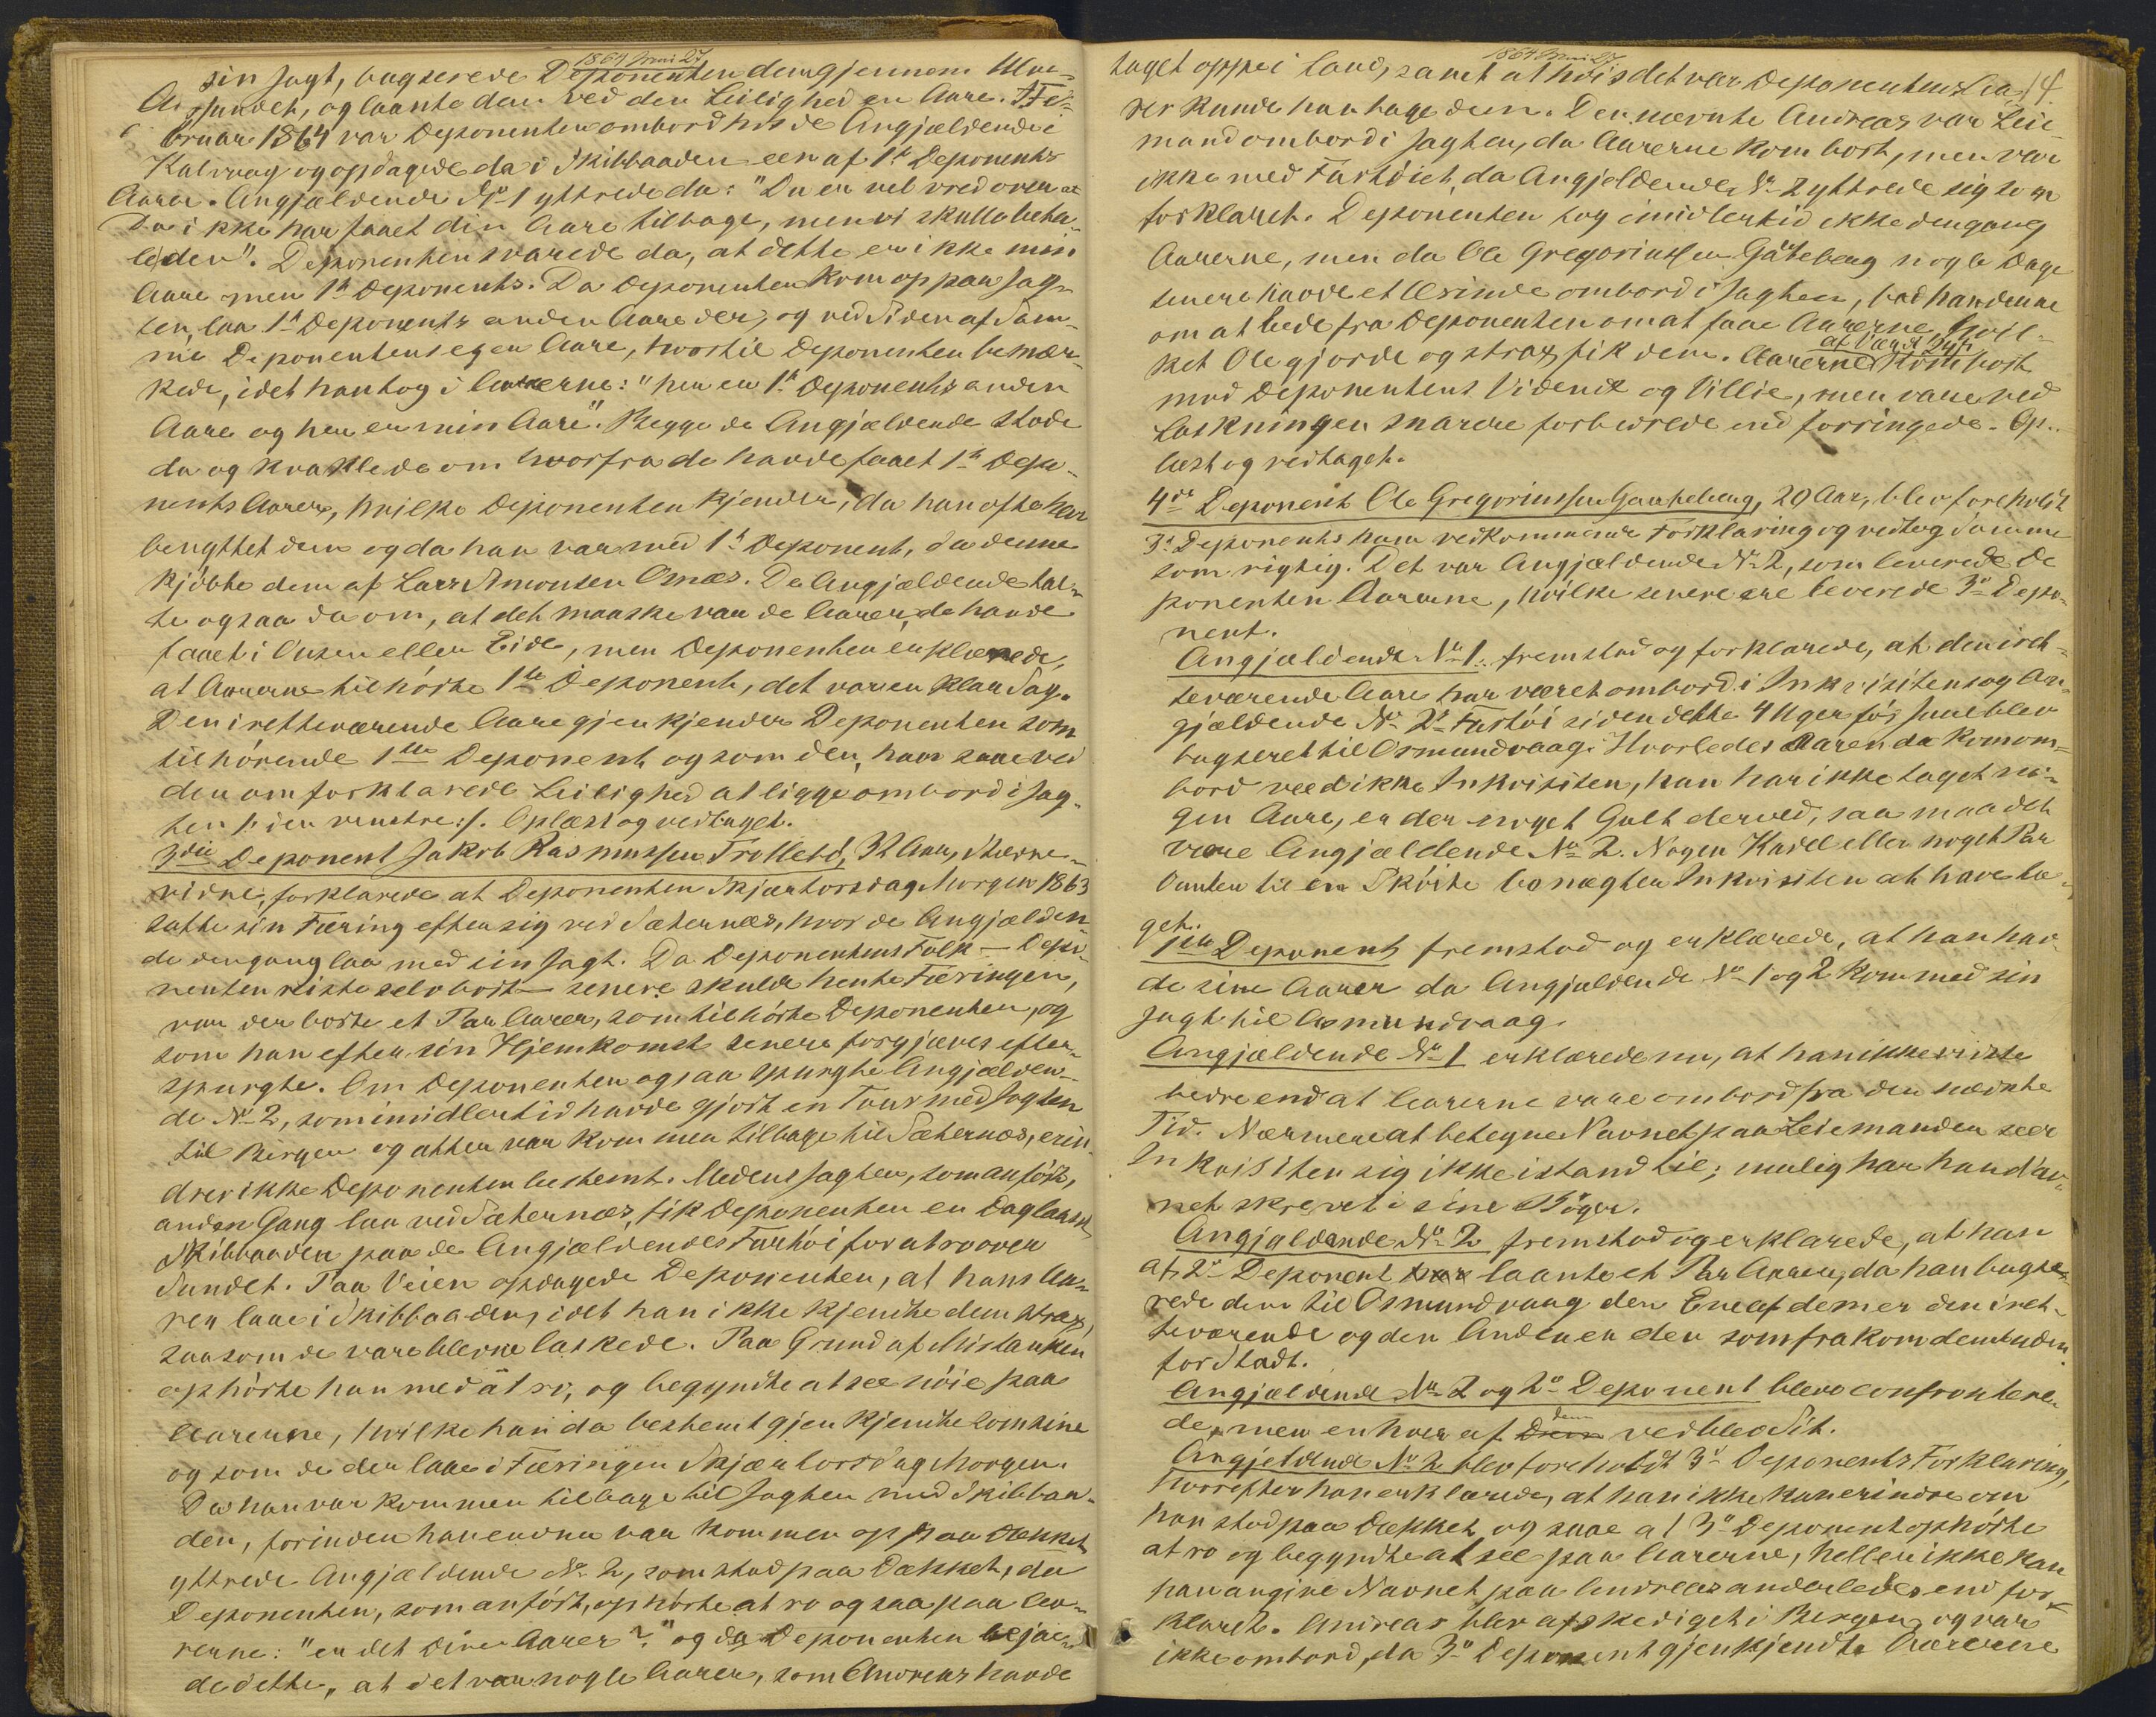 1864 Mai 27
sin Jagt, bugserede Deponenten dem gjennem Ulve-
sundet, og laante dem ved den Leilighed en Aare. I Fe-
bruar 1864 var Deponenten ombord hos de Angjældende i
Kalvvag og opdagede da i Skibbaaden een af 1ste Deponents
Aarer. Angjældende No 1 yttrede da: "Du er vel vred over at
Du ikke har faaet din Aare tilbage, men vi skulle beta-
le den". Deponenten svarede da, at dette er ikke min
Aare men 1ste Deponents. Da Deponenten kom op paa Jag-
ten, laa 1ste Deponents anden Aare der, og ved Siden af Sam-
me Deponentens egen Aare, hvortil Deponenten bemær-
kede, idet han tog i Aarerne: "her er 1ste Deponents anden
Aare og her er min Aare". Begge de Angjældende stode
da og kraklede om hvorfra de havde faaet 1ste Depo-
nents Aarer, hvilke Deponenten kjender, da han ofte har
benyttet dem og da han var med 1ste Deponent, da denne
kjøbte dem af Lars Simonsen Osnæs. De Angjældende tal-
te ogsaa da om, at det maaske var de Aarer, de havde
faaet i Ousen eller Eide, men Deponenten erklærede,
at Aarerne tilhørte 1ste Deponent, det var en klar Sag.
Den iretteværende Aare gjenkjender Deponenten som
tilhørende 1ste Deponent og som den, han saae ved
den omforklarede Leilighed at ligge ombord i Jag-
ten /: den venstre :/. Oplæst og vedtaget.
3die Deponent Jakob Rasmussen Trolleбø, 32 Aar,
vidne, forklarede at Deponenten Skjærtorsdag Morgen 1863
satte sin Færing efter sig ved Sæternæs, hvor de Angjælden-
de dengang laa med sin Jagt. Da Deponentens Folk – Depo-
nenten reiste selv bort – senere skulde hente Færingen,
var der borte et Par Aarer, som tilhørte Deponenten, og
som han efter sin Hjemkomst senere forgjæves efter-
spurgte. Om Deponenten ogsaa spurgte Angjælden-
de No 2, som imidlertid havde gjort en Tour med Jagten
til Bergen og atter var kommen tilbage til Sæternæs, erin-
drer ikke Deponenten bestemt. Medens Jagten, som anført,
anden Gang laa ved Sæternæs, fik Deponenten en Dag laant
Skibbaaden paa de Angjældendes Fartøi for at ro over
Sundet. Paa Veien opdagede Deponenten, at hans Aa-
rer laae i Skibbaaden, idet han ikke kjendte dem strax,
saasom de vare blevne laskede. Paa Grund af Mistanken
ophørte han med at ro, og begyndte at see nøie paa
Aarerne, hvilke han da bestemt gjenkjendte som sine
og som de der laae i Færingen Skjærtorsdag Morgen.
Da han var kommen tilbage til Jagten med Skibbaa-
den, forinden han endnu var kommen op paa Dækket
yttrede Angjældende No 2, som stod paa Dækket, da
Deponenten, som anført, ophørte at ro og saa paa Aa-
rerne: "er det dine Aarer?" og da Deponenten bejae-
de dette, at det var nogle Aarer, som Andreas havde
1864 Mai 27
14
taget oppe i Land, samt at hvis det var Deponentens Aa-
rer kunde han tage dem. Den nævnte Andreas var Leie-
mand ombord i Jagten, da Aarerne kom bort, men var
ikke med Fartøiet, da Angjældende No 2 yttrede sig som
forklaret. Deponenten tog imidlertid ikke dengang
Aarerne, men da Ole Gregoriussen Gåteberg nogle Dage
senere havde et Ærinde ombord i Jagten, bad han denne
om at bede fra Deponenten om at faae Aarerne, hvil-
ket Ole gjorde og strax fik dem. Aarerne kom bort
mod Deponentens Vidende og Villie, men vare ved
Laskningen snarere forbedrede end forringede. Op-
læst og vedtaget.
4de Deponent Ole Gregoriussen Gaateberg, 20 Aar, blev foreholdt
3die Deponents ham vedkommende Forklaring og vedtog samme
som rigtig. Det var Angjældende No 2, som leverede De-
ponenten Aarerne, hvilke senere ere leverede 3die Depo-
nent.
Angjældende No 1. fremstod og forklarede, at den iret-
teværende Aare har været ombord i Inkvisitens og An-
gjældende No 2's Fartøi siden dette 4 Uger før Juul blev
bugseret til Osmundvaag. Hvorledes Aaren da kom om-
bord veed ikke Inkvisiten, han har ikke taget no-
gen Aare, er der noget Galt derved, saa maa det
være Angjældende No 2. Nogen Kasel eller noget Par
Vanter til en Skøite benægter Inkvisiten at have ta-
get.
1ste Deponent fremstod og erklærede, at han hav-
de sine Aarer da Angjældende No 1 og 2 kom med sin
Jagt til Osmundvaag.
Angjældende No 1 erklærede nu, at han ikke vidste
bedre end at Aarerne vare ombord fra den nævnte
Tid. Nærmere at betegne Navnet paa Leiemanden seer
Inkvisiten sig ikke istand til; mulig har han Nav-
net skrevet i sine Bøger.
Angjældende No 2 fremstod og erklarede, at han
af 2den Deponent laante et Par Aarer, da han bugse-
rede dem til Osmundvaag den Ene af dem er den iret-
teværende og den Anden er den som frakom dem inden-
for Stadt.
Angjældende No 2 og 2den Deponent bleve confrontere-
de, men enhver af dem vedblev Sit.
Angjeldende No 2 blev foreholdt 3die Deponents Forklaring,
hvorefter han erklærede, at han ikke kan erindre om
han stod paa Dækket og saae at 3die Deponent ophørte
at ro og begyndte at see paa Aarerne, heller ikke kan
han angive Navnet paa Andreas anderledes end for-
klaret. Andreas blev afskediget i Bergen og var
ikke ombord, da 3die Deponent gjenkjendte Aarerne